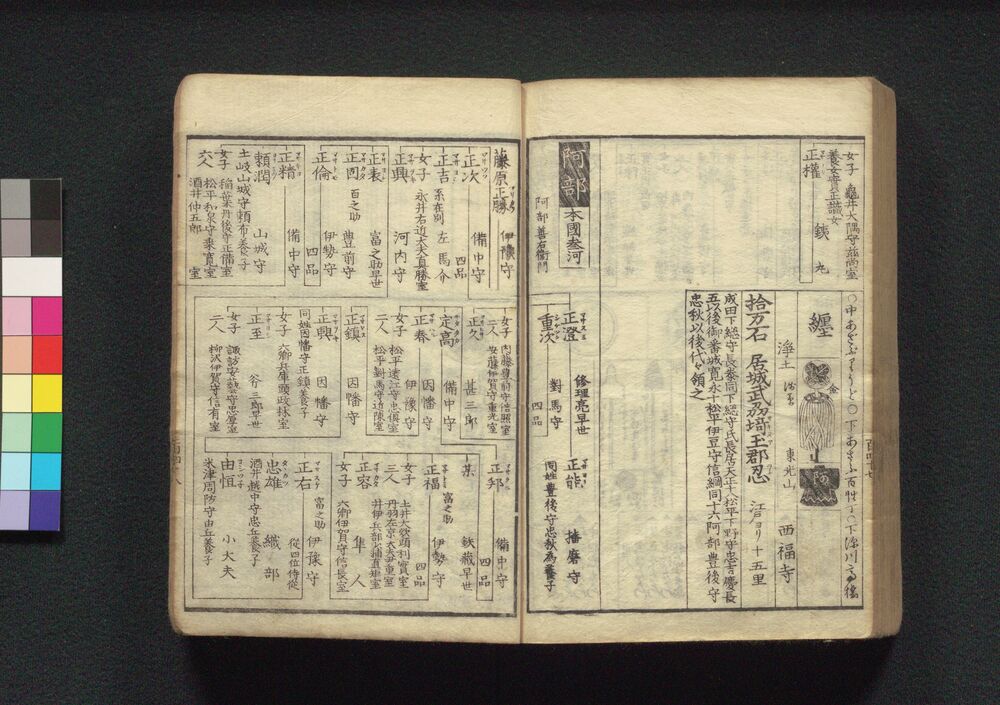 女子 龜井大隅守茲満室
養女實正識女
正權 銕丸
纏
浄土 東光山 西福寺
拾万石 居城武刕埼玉郡忍 江戸ヨリ十五里
成田下総守長泰同下総守氏長居天正十八松平下野守忠吉慶長
五以後御番城寛永十松平伊豆守信綱同十六阿部豊後守
忠秋以後代々領之
阿部 本國参河
阿部善右衛門
正澄 修理亮早世
重次 對馬守 四品
正能 播磨守
同姓豊後守忠秋為養子
藤原正勝 伊豫守
正次 備中守 四品
正吉 系在別 左馬介
女子 永井右近大夫直勝室
正興 河内守
正表 富之助早世
正圀 百之助 豊前守
正倫 伊勢守 四品
正精 備中守
頼潤 山城守
土岐山城守頼布養子
女子 稲葉丹後守正備室
松平和泉守乗寛室
酒井仲五郎室
女子 内藤豊前守信照室
二人 安藤伊賀守重光室
正久 甚三郎
定高 備中守
正春 因幡守 伊豫守
女子 松平遠江守忠倶室
二人 松平對馬守近陳室
正鎮 因幡守
正興 因幡守
同姓因幡守正鎮養子
女子 六郷兵庫頭政林室
正至 斧三郎早世
女子 諏訪安藝守忠厚室
二人 柳沢伊賀守信有室
正邦 備中守 四品
某 銕蔵早世
正福 富之助 伊勢守 四品
女子 土井大炊頭利實室
三人 丹羽左京大夫
井伊兵部少輔直矩室
正容 隼人
女子 六郷伊賀守信長室
正右 富之助 伊豫守 従四位侍従
忠雄 織部
酒井越中守忠丘養子
由恒 小大夫
米津周防守由丘養子